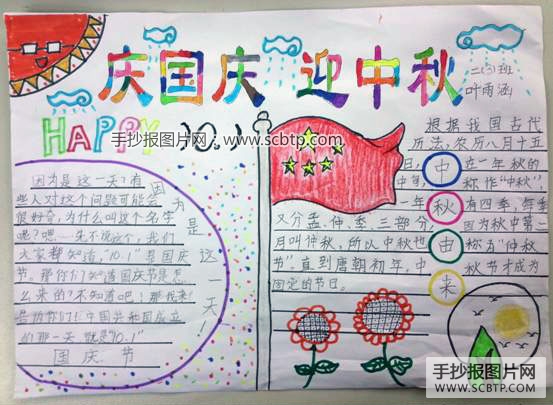 庆国庆 迎中秋
二(3)班
叶雨涵
HAPPY 10.1
手抄报图片网
www.scbtp.com
因为是这一天!
因为是这一天?有
些人对这个问题可能会
很好奇,为什么叫这个名字
呢?嗯…先不说这个,我们
大家都知道,"10.1"是国庆
节。那你们知道国庆节是怎
么来的?不知道吧!那我来
告诉你们!中国共和国成立
的那一天就是"10.1"
国庆节
中秋由来
根据我国古代
历法,农历八月十五
日,
立一年秋的
称作"中秋"
一年
有四季,每季
又分孟、仲、季三部分,
因为秋中第二
月叫仲秋,所以中秋也
称为"仲秋
节"。直到唐朝初年,中
秋节才成为
固定的节日。
手抄报图片网
WWW.SCBTP.COM